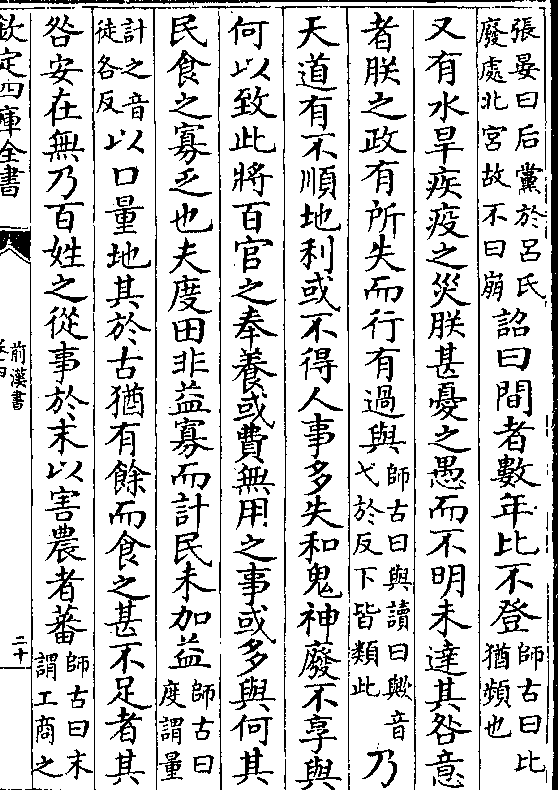 張晏曰后黨於呂氏
廢處北宮故不曰崩
詔曰間者數年比不登
師古曰比
猶頻也
又有水旱疾疫之災朕甚憂之愚而不明未達其咎意
者朕之政有所失而行有過與
師古曰與讀曰歟音
弋於反下皆類此
乃
天道有不順地利或不得人事多失和鬼神廢不享與
何以致此將百官之奉養或費無用之事或多與何其
民食之寡乏也夫度田非益寡而計民未加益
師古曰
度謂量
計之音
徒各反
以口量地其於古猶有餘而食之甚不足者其
咎安在無乃百姓之從事於末以害農者蕃
師古曰末
謂工商之
欽定四庫全書
前漢書
卷四
二十